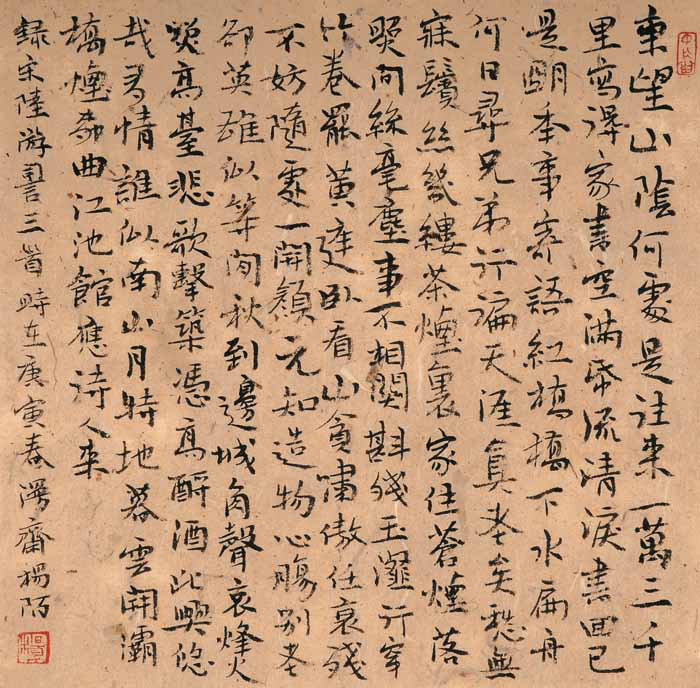 東望山陰何處是往來一萬三千
里寫得家書空滿帋流清淚書回已
是明年事寄語紅橋橋下水扁舟
何日尋兄弟行遍天涯真老矣愁無
寐鬢絲幾縷茶煙裏家住蒼煙落
照間絲毫塵事不相關斟殘玉瀣行穿
竹卷罷黃庭臥看山貪嘯傲任衰殘
不妨隨處一開顏元知造物心腸別老
卻英雄似等閒秋到邊城角聲哀烽火
照高臺悲歌擊築憑高酹酒此興悠
哉多情誰似南山月特地暮雲開灞
橋煙柳曲江池館應待人來
錄宋陸游詞三首時在庚寅春漫齋楊陌